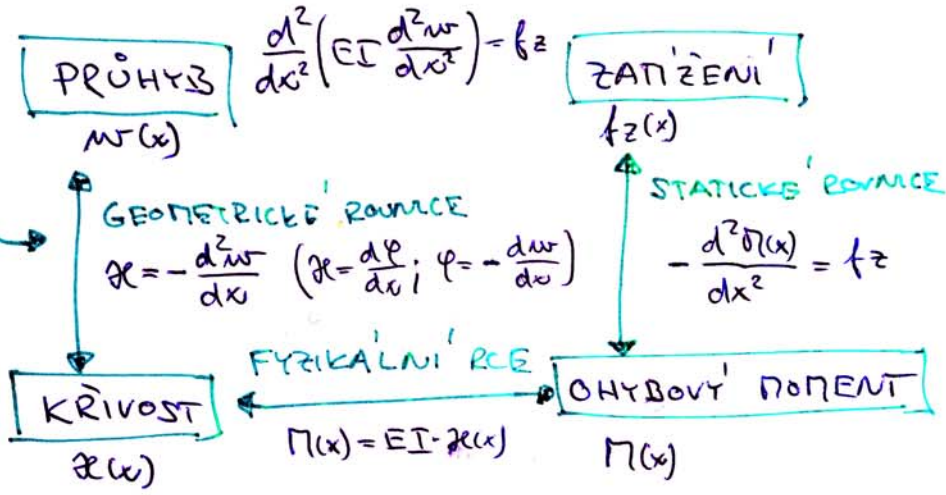 PRŮHYB
w(x)
d²/dx² (EI d²w/dx²) = fz
ZATÍŽENÍ
fz(x)
GEOMETRICKÉ ROVNICE
ϰ = - d²w/dx (ϰ = dφ/dx; φ = - dw/dx)
STATICKÉ ROVNICE
- d²M(x)/dx² = fz
FYZIKÁLNÍ RCE
M(x) = EI·ϰ(x)
KŘIVOST
ϰ(x)
OHYBOVÝ MOMENT
M(x)